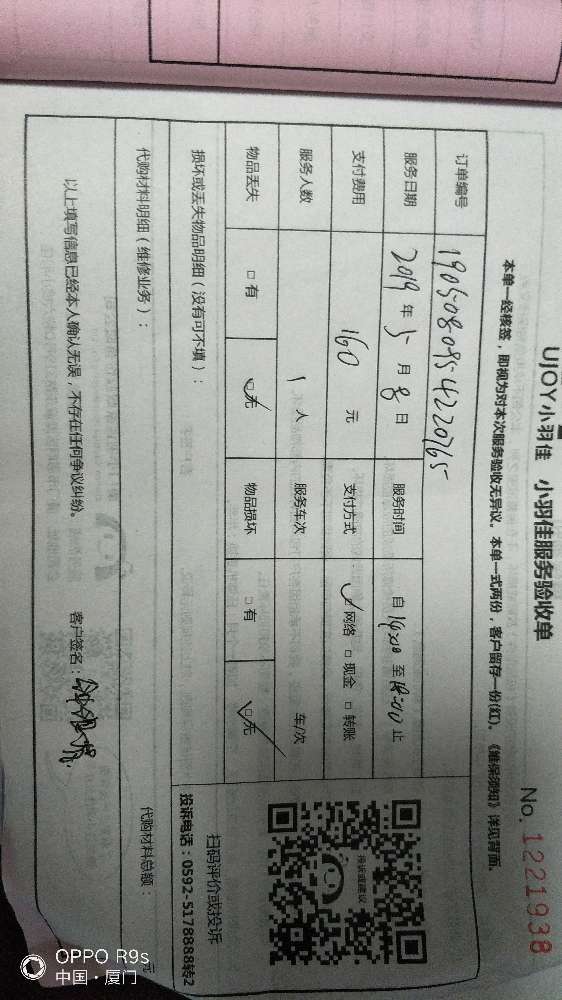 UJOY小羽佳 小羽佳服务验收单
No. 1221938
本单一经核签，即视为对本次服务验收无异议。本单一式两份，客户留存一份(红)。《维保须知》详见背面。
订单编号 1905080954220765
服务日期 2019 年 5 月 8 日 服务时间 自 14:00 至 18:00 止
支付费用 160 元 支付方式 ☑ 网络 □ 现金 □ 转账
服务人数 1 人 服务车次 车/次
物品丢失 □ 有 ☑ 无 物品损坏 □ 有 ☑ 无
投诉或建议
扫码评价或投诉
投诉电话：0592-5178888转2
损坏或丢失物品明细（没有可不填）：
代购材料明细（维修业务）： 代购材料总额： 元
以上填写信息已经本人确认无误，不存在任何争议纠纷。 客户签名：
OPPO R9s
中国·厦门